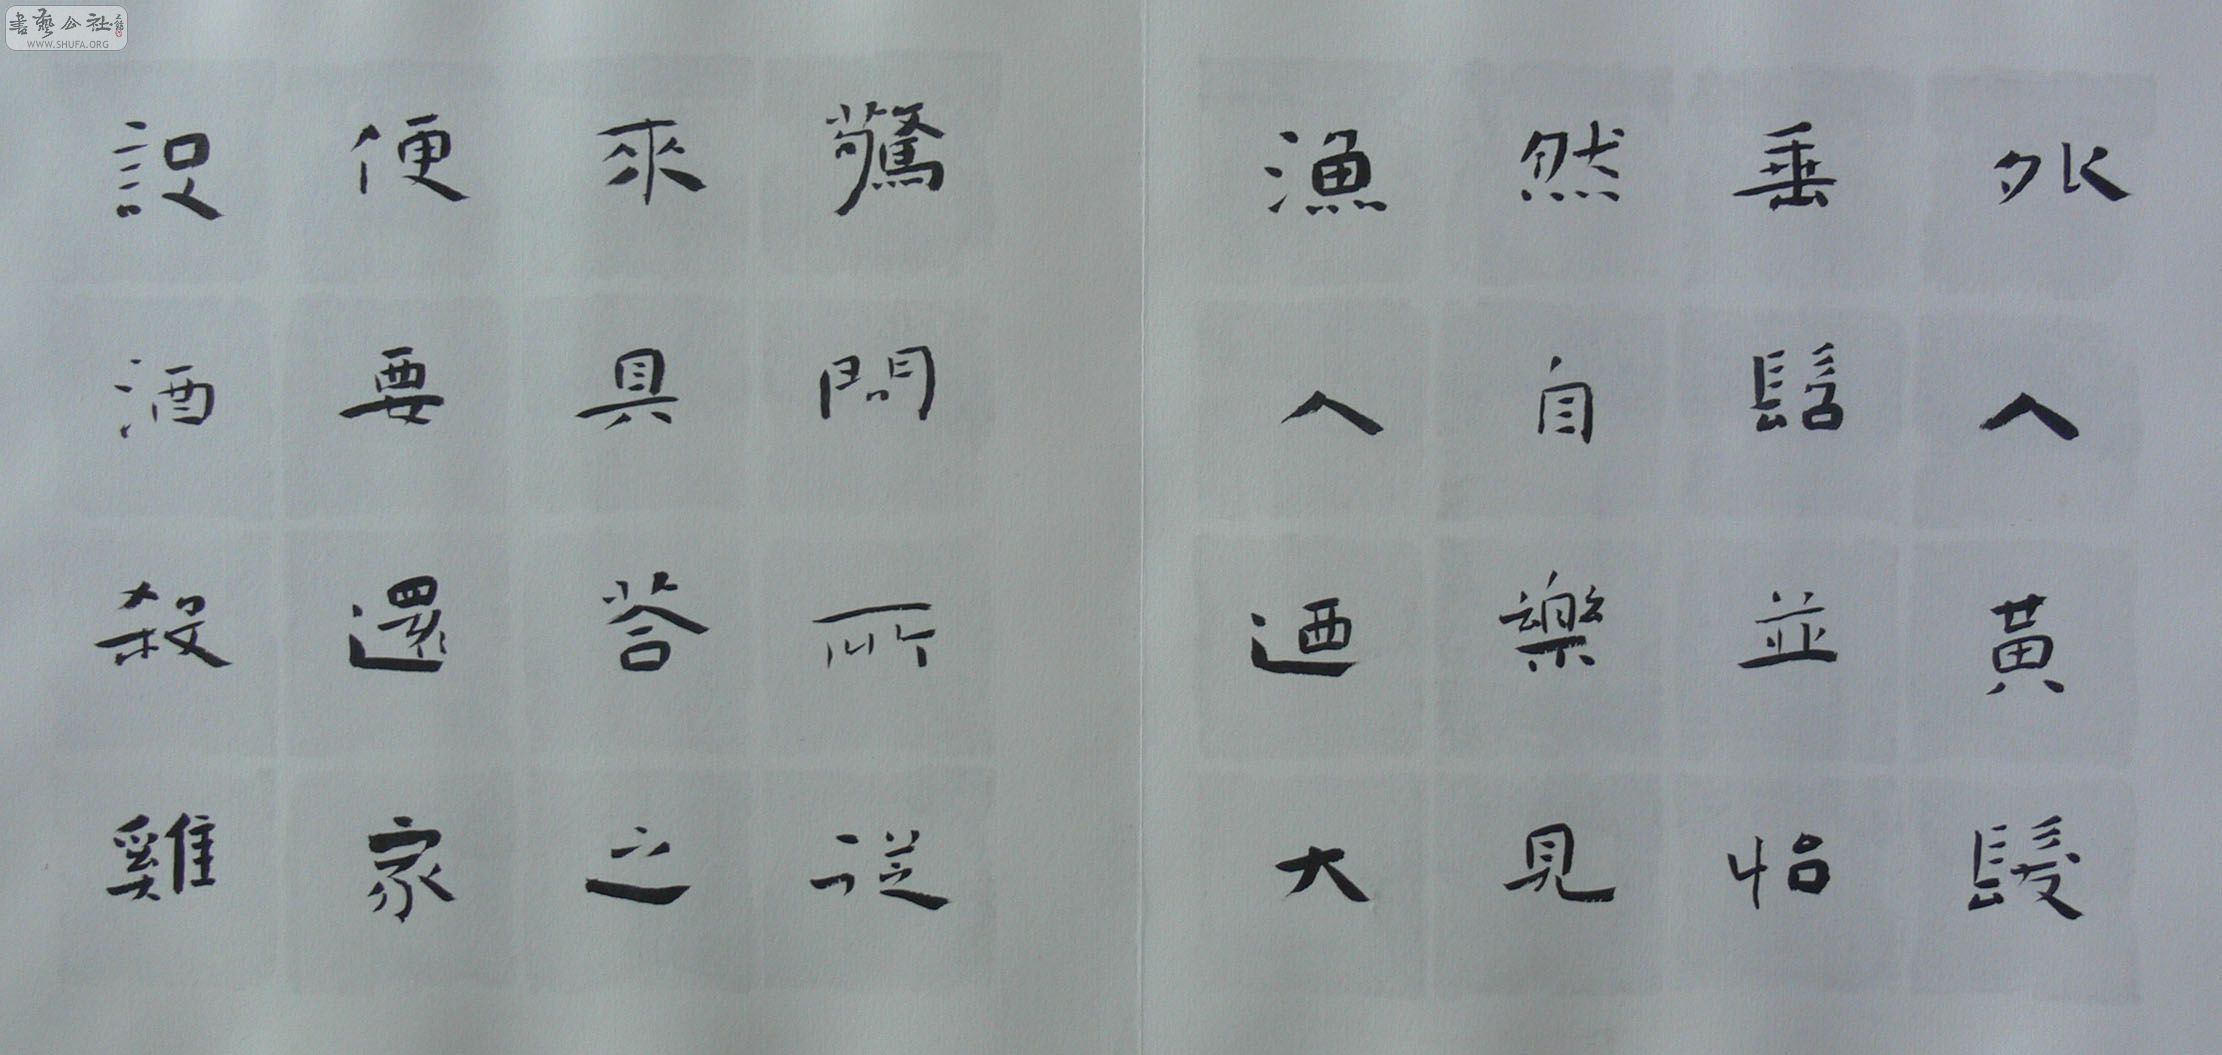 外人黃髮
垂髫並怡
然自樂見
漁人迺大
驚問所從
來具荅之
便要還家
設酒殺雞
書藝公社
WWW.SHUFA.ORG